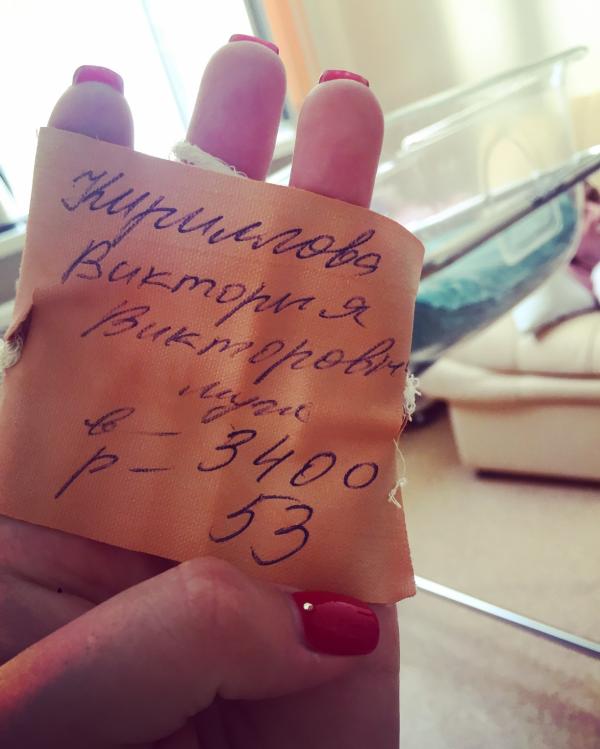 Кириллова
Виктория
Викторовн
муж
в -
р - 3400
53